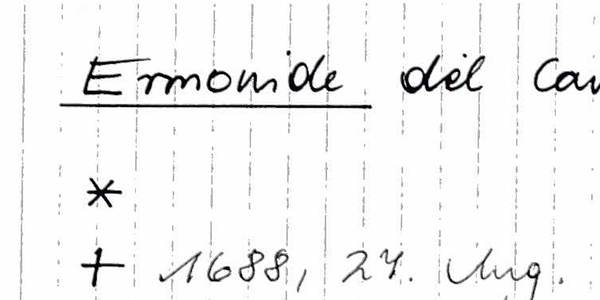 Ermonide del Cav
*
+ 1688, 27. Aug.